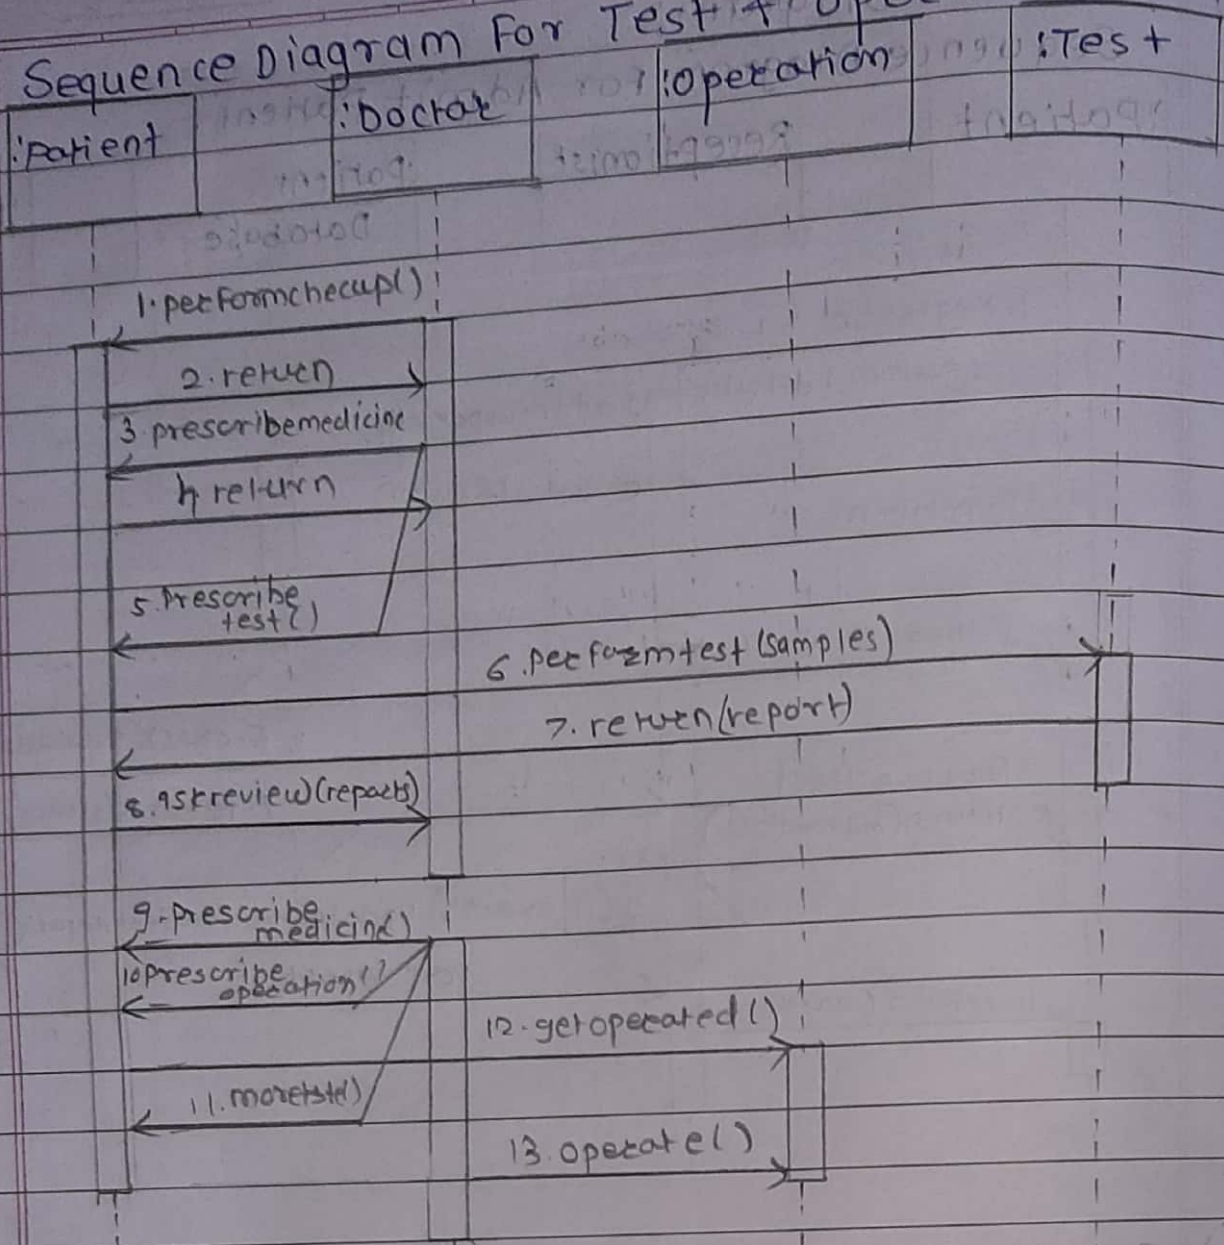 Sequence Diagram For Test
:Patient
:Doctor
:Operation
:Test
1. performchecup()
2. return
3. prescribemedicine
4 return
5. Prescribe
test()
6. Performtest (samples)
7. return(report)
8. askreview(reports)
9. prescribe
medicine()
10 prescribe
operation()
12. getoperated()
11. moretste()
13. operate()